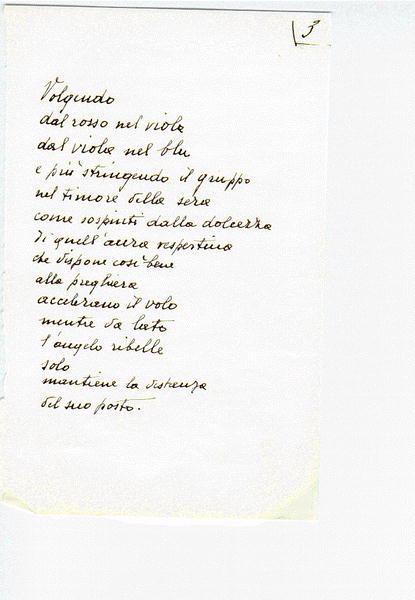 3
Volgendo
dal rosso nel viola
dal viola nel blu
e più stringendo il gruppo
nel timore della sera
come sospinti dalla dolcezza
di quell'aura vespertina
che dispone così bene
alla preghiera
accelerano il volo
mentre da lato
l'angelo ribelle
solo
mantiene la distanza
del suo posto.